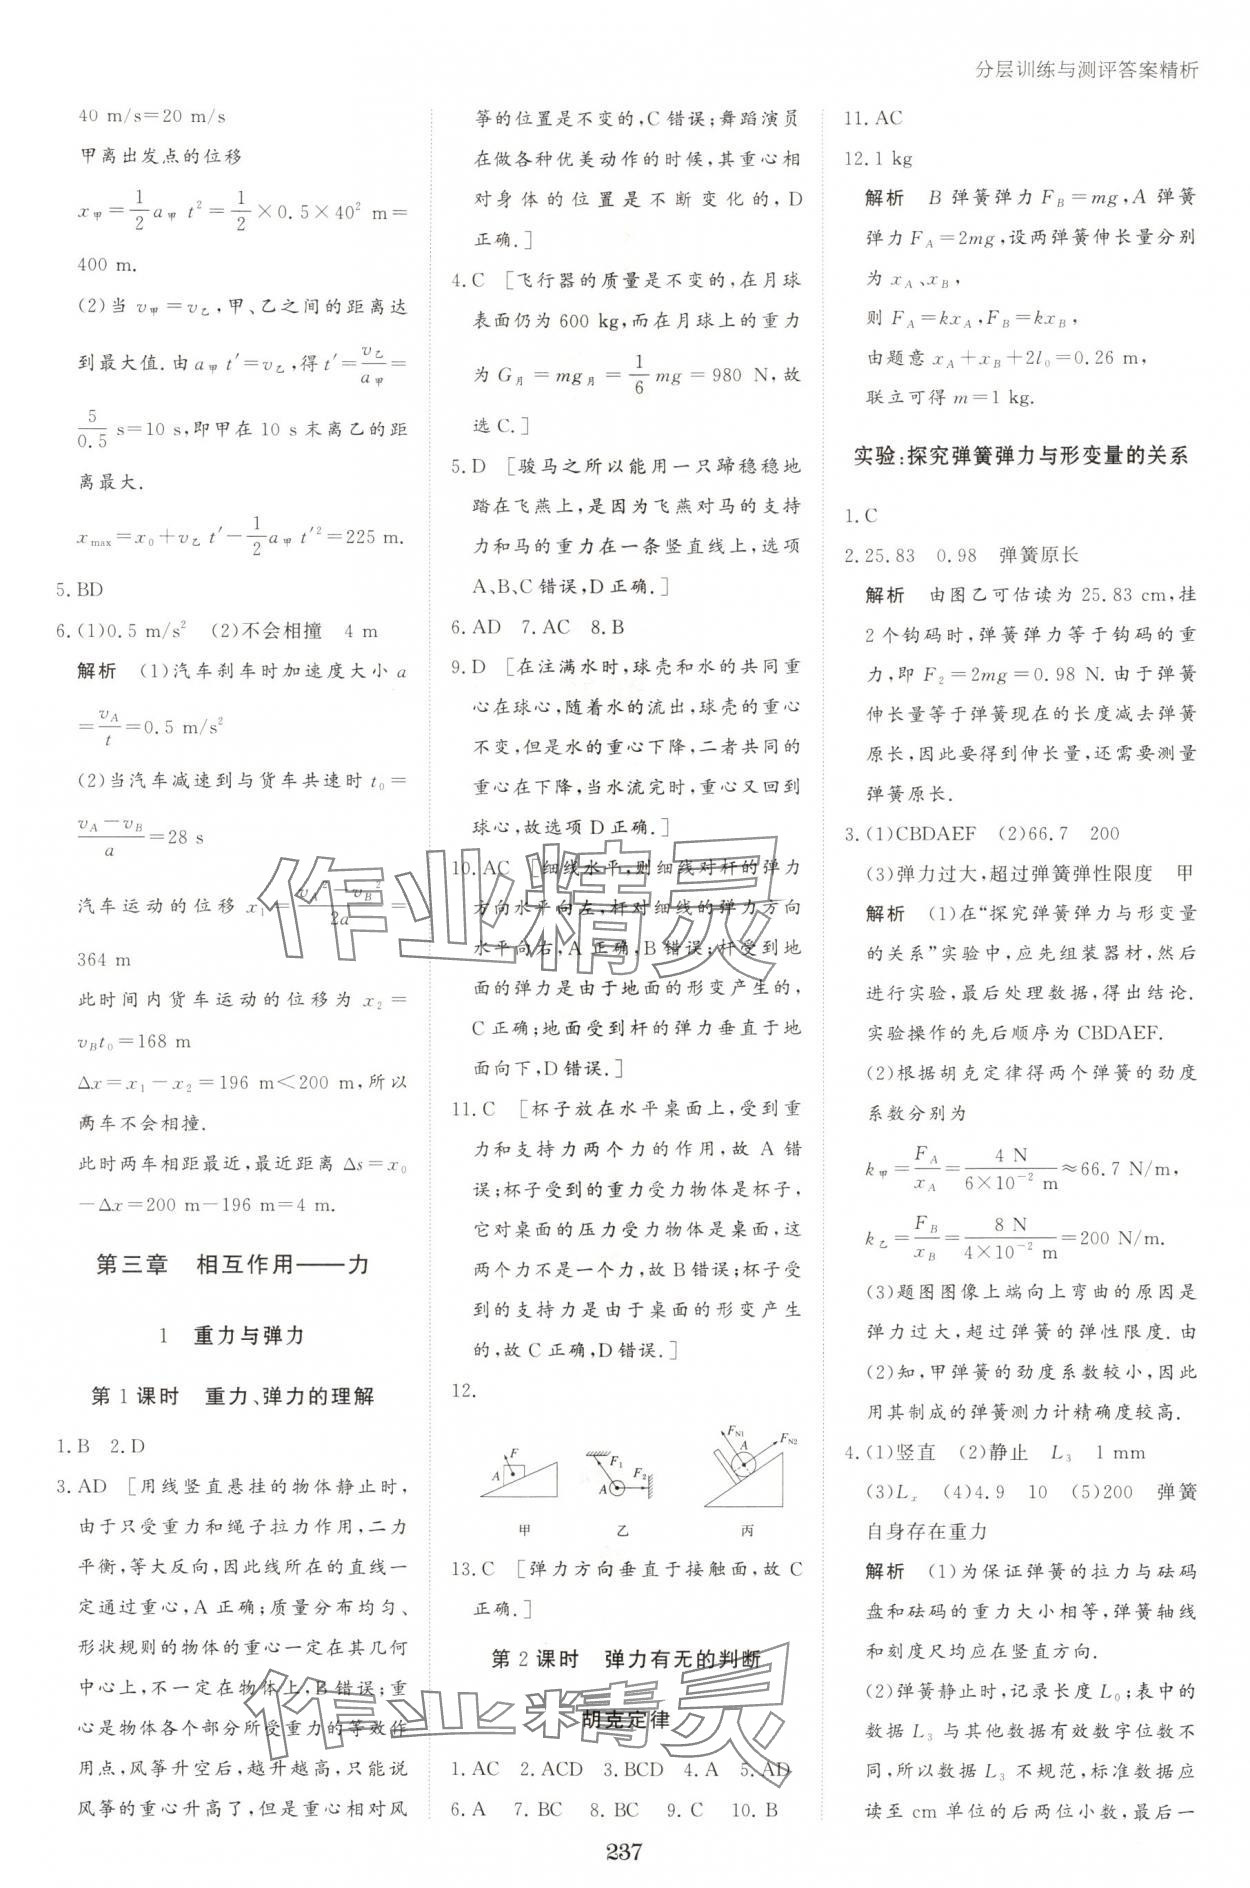 分层训练与测评答案精析
40 m/s=20 m/s
甲离出发点的位移
x甲=1/2 a甲 t²=1/2×0.5×40² m=
400 m.
(2)当 v甲=v乙,甲、乙之间的距离达
到最大值.由a甲 t′=v乙,得t′=v乙/a甲=
5/0.5 s=10 s,即甲在 10 s末离乙的距
离最大.
xmax=x₀+v乙 t′-1/2 a甲 t′²=225 m.
5.BD
6.(1)0.5 m/s² (2)不会相撞 4 m
解析 (1)汽车刹车时加速度大小 a
=vA/t=0.5 m/s²
(2)当汽车减速到与货车共速时 t₀=
(vA-vB)/a=28 s
汽车运动的位移 x₁=(vA²-vB²)/2a=
364 m
此时间内货车运动的位移为 x₂=
vBt₀=168 m
Δx=x₁-x₂=196 m<200 m,所以
两车不会相撞.
此时两车相距最近,最近距离 Δs=x₀
-Δx=200 m-196 m=4 m.
第三章 相互作用——力
1 重力与弹力
第1课时 重力、弹力的理解
1.B 2.D
3.AD [用线竖直悬挂的物体静止时,
由于只受重力和绳子拉力作用,二力
平衡,等大反向,因此线所在的直线一
定通过重心,A 正确;质量分布均匀、
形状规则的物体的重心一定在其几何
中心上,不一定在物体上,B 错误;重
心是物体各个部分所受重力的等效作
用点,风筝升空后,越升越高,只能说
风筝的重心升高了,但是重心相对风
筝的位置是不变的,C 错误;舞蹈演员
在做各种优美动作的时候,其重心相
对身体的位置是不断变化的,D
正确.]
4.C [飞行器的质量是不变的,在月球
表面仍为 600 kg,而在月球上的重力
为 G月=mg月=1/6 mg=980 N,故
选 C.]
5.D [骏马之所以能用一只蹄稳稳地
踏在飞燕上,是因为飞燕对马的支持
力和马的重力在一条竖直线上,选项
A、B、C 错误,D 正确.]
6.AD 7.AC 8.B
9.D [在注满水时,球壳和水的共同重
心在球心,随着水的流出,球壳的重心
不变,但是水的重心下降,二者共同的
重心在下降,当水流完时,重心又回到
球心,故选项 D 正确.]
10.AC [细线水平,则细线对杆的弹力
方向水平向左,杆对细线的弹力方向
水平向右,A 正确,B 错误;杆受到地
面的弹力是由于地面的形变产生的,
C 正确;地面受到杆的弹力垂直于地
面向下,D 错误.]
11.C [杯子放在水平桌面上,受到重
力和支持力两个力的作用,故 A 错
误;杯子受到的重力受力物体是杯子,
它对桌面的压力受力物体是桌面,这
两个力不是一个力,故 B 错误;杯子受
到的支持力是由于桌面的形变产生
的,故 C 正确,D 错误.]
12.
F A
F₁ F₂ A
FN1 A FN2
甲 乙 丙
13.C [弹力方向垂直于接触面,故 C
正确.]
第2课时 弹力有无的判断
胡克定律
1.AC 2.ACD 3.BCD 4.A 5.AD
6.A 7.BC 8.BC 9.C 10.B
11.AC
12.1 kg
解析 B 弹簧弹力 FB=mg,A 弹簧
弹力 FA=2mg,设两弹簧伸长量分别
为 xA、xB,
则 FA=kxA,FB=kxB,
由题意 xA+xB+2l₀=0.26 m,
联立可得 m=1 kg.
实验:探究弹簧弹力与形变量的关系
1.C
2.25.83 0.98 弹簧原长
解析 由图乙可估读为 25.83 cm,挂
2个钩码时,弹簧弹力等于钩码的重
力,即 F₂=2mg=0.98 N.由于弹簧
伸长量等于弹簧现在的长度减去弹簧
原长,因此要得到伸长量,还需要测量
弹簧原长.
3.(1)CBDAEF (2)66.7 200
(3)弹力过大,超过弹簧弹性限度 甲
解析 (1)在“探究弹簧弹力与形变量
的关系”实验中,应先组装器材,然后
进行实验,最后处理数据,得出结论.
实验操作的先后顺序为 CBDAEF.
(2)根据胡克定律得两个弹簧的劲度
系数分别为
k甲=FA/xA=4 N/(6×10⁻² m)≈66.7 N/m,
k乙=FB/xB=8 N/(4×10⁻² m)=200 N/m.
(3)题图图像上端向上弯曲的原因是
弹力过大,超过弹簧的弹性限度.由
(2)知,甲弹簧的劲度系数较小,因此
用其制成的弹簧测力计精确度较高.
4.(1)竖直 (2)静止 L₃ 1 mm
(3)Lₓ (4)4.9 10 (5)200 弹簧
自身存在重力
解析 (1)为保证弹簧的拉力与砝码
盘和砝码的重力大小相等,弹簧轴线
和刻度尺均应在竖直方向.
(2)弹簧静止时,记录长度 L₀;表中的
数据 L₃ 与其他数据有效数字位数不
同,所以数据 L₃ 不规范,标准数据应
读至 cm 单位的后两位小数,最后一
237
作业精灵
作业精灵